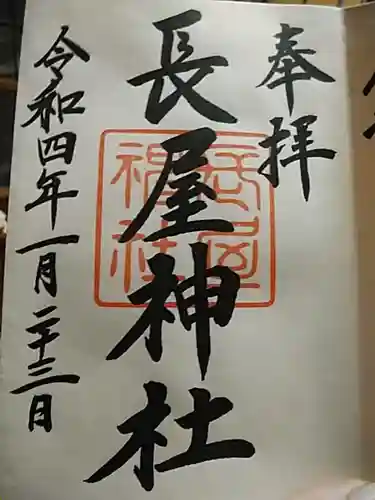 奉拝
長屋神社
令和四年一月二十三日
長屋
神社